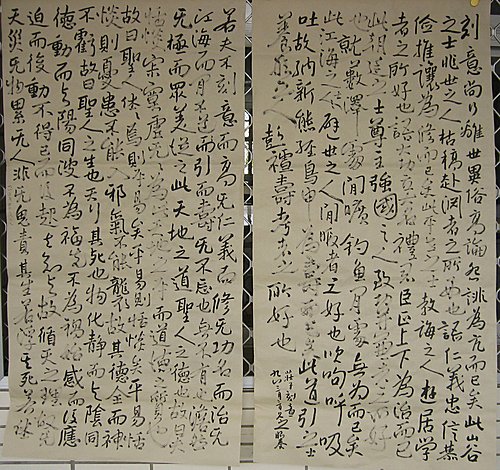 刻意尚行離世異俗高論怨誹為亢而已矣此山谷
之士非世之人枯槁赴淵者之所好也語仁義忠信恭
儉推讓為修而已矣此平世之士教誨之人遊居學
者之所好也語大功立大名禮君臣正上下為治而已
矣此朝廷之士尊主強國之人致功并兼者之所好
也就藪澤處閒曠釣魚閒處無為而已矣
此江海之士避世之人閒暇者之好也吹呴呼吸
吐故納新熊經鳥申為壽而已矣此道引之士
養形之人彭祖壽考者之所好也
若夫不刻意而高无仁義而修无功名而治无
江海而閒不道引而壽无不忘也無不有也澹然
无極而眾美從之此天地之道聖人之德也故曰夫
恬惔寂寞虛无無為此天地之平而道德之質也
故曰聖人休休焉則平易矣平易則恬惔矣平易恬
惔則憂患不能入邪氣不能襲故其德全而神
不虧故曰聖人之生也天行其死也物化靜而与陰同
德動而与陽同波不為福先不為禍始感而後應
迫而後動不得已而後起去知与故循天之理故无
天災无物累无人非无鬼責其生若浮其死若休